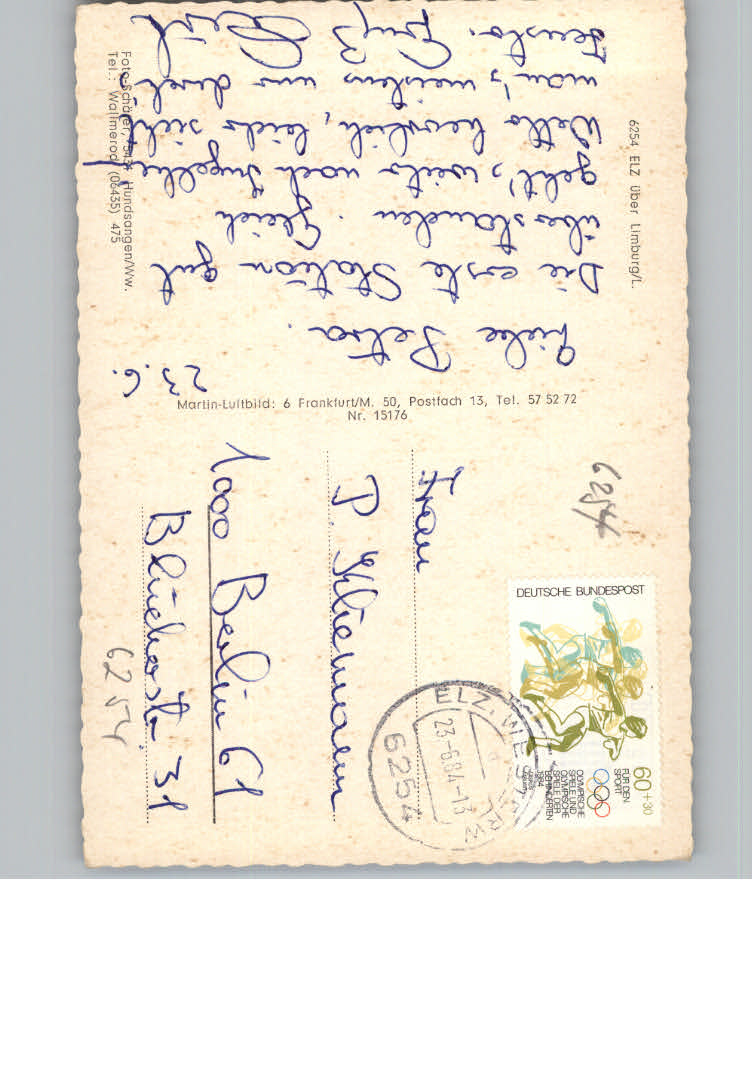 6254 ELZ über Limburg/L.
23.6.
Liebe Petra.
Die erste Station gut
überstanden. Gleich
geht's weiter nach
Wetter herrlich, leider sieht
man's meistens nur durch
Fenster. Gruß
Foto-Schäfer, 5431 Hundsangen/Ww.
Tel.: Wallmerod (06435) 475
Martin-Luftbild: 6 Frankfurt/M. 50, Postfach 13, Tel. 57 52 72
Nr. 15176
6254
DEUTSCHE BUNDESPOST
60+30
FÜR DEN
SPORT
OLYMPISCHE
SPIELE UND
OLYMPISCHE
SPIELE DER
BEHINDERTEN
1984
ELZ, WESTERW
23-6.84-13
6254
Frau
P. Kliemann
1000 Berlin 61
Blücherstr. 31
6254